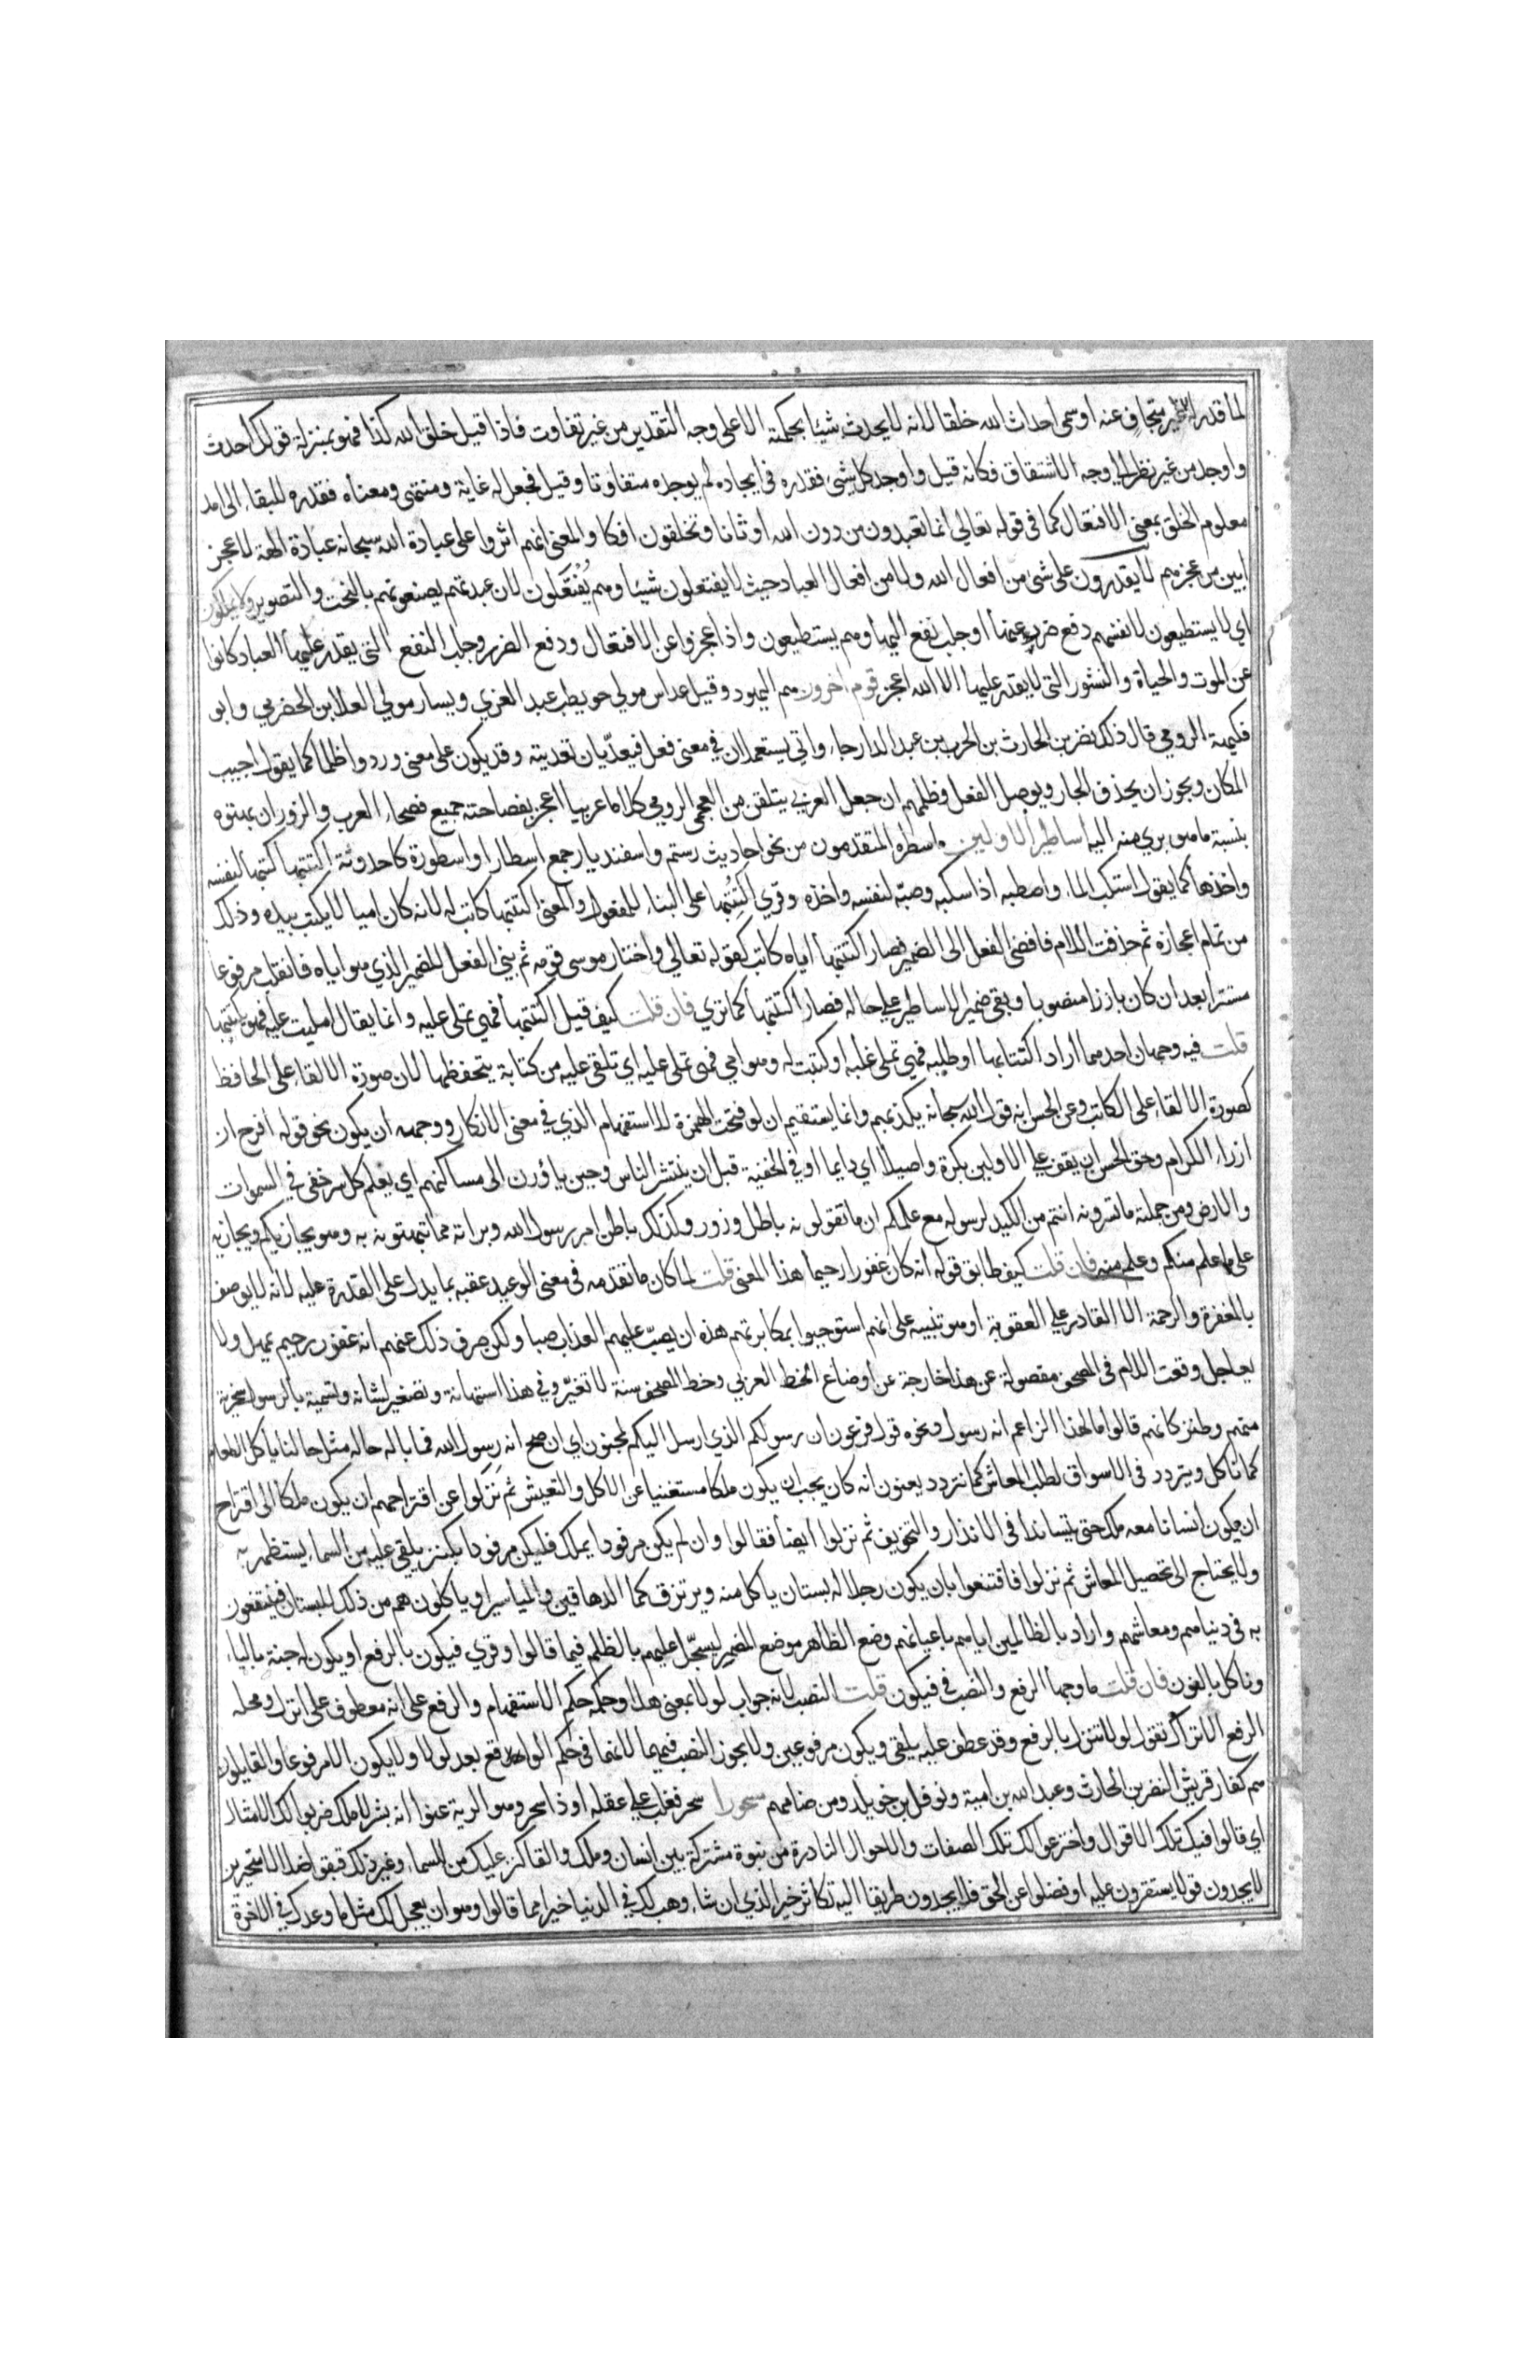 لما قدر له غير متجاف عنه او سمى احداث الله خلقا لانه لا يحدث شيئا بحكمته الا على وجه التقدير من غير تفاوت فاذا قيل خلق الله كذا فهو بمنزلة قولك احدث
واوجد من غير نظر الى وجه الاشتقاق فكانه قيل واوجد كل شي فقدره في ايجاده لم يوجده متفاوتا وقيل فجعل له غاية ومنتهى ومعناه فقدره للبقاء الى امد
معلوم الخلق بمعنى الافتعال كما في قوله تعالى انما تعبدون من دون الله اوثانا وتخلقون افكا والمعنى انهم اثروا على عبادة الله سبحانه عبادة الهة لا عجز
ابين من عجزهم لا يقدرون على شي من افعال الله ولا من افعال العباد حيث لا يفتعلون شيئا وهم يُفْتَعَلون لان عبدتهم يصنعونهم بالنحت والتصوير ولا يملكون
اي لا يستطيعون لانفسهم دفع ضرر عنها او جلب نفع اليها وهم يستطيعون واذا عجزوا عن الافتعال ودفع الضرر وجلب النفع التي يقدر عليها العباد كانوا
عن الموت والحياة والنشور التي لا يقدر عليها الا الله اعجز قوم اخرون هم اليهود وقيل عداس مولي حويطب عبد العزي ويسار مولي العلا بن الحضرمي وابو
فكيهة الرومي قال ذلك نضر بن الحارث بن الحرب بن عبد الدار جاء واتي يستعملان في معنى فعل فيعدّيان تعديته وقد يكون على معنى وردوا ظلما كما يقول اجيب
المكان ويجوز ان يحذف الجار ويوصل الفعل وظلمهم ان جعل العربي يتلقن من العجمي الرومي كلاما عربيا اعجز بفصاحته جميع فصحاء العرب والزور ان بهتوه
بنسبة ما هو بري منه اليه اساطير الاولين ما سطره المتقدمون من نحو احاديث رستم واسفنديار جمع اسطار او اسطورة كاحدوثة اكتتبها كتبها لنفسه
واخذها كما يقول استكب الماء واصطبه اذا سكبه وصبّه لنفسه واخذه وقري اكتتبها على البناء للمفعول والمعنى اكتتبها كاتب له لانه كان اميا لا يكتب بيده وذلك
من تمام اعجازه ثم حذفت اللام فافضى الفعل الى الضمير فصار اكتتبها اياه كاتب كقوله تعالي واختار موسى قومه ثم بني الفعل للضمير الذي هو اياه فانقلب مرفوعا
مستترا بعد ان كان بارزا منصوبا وبقي ضمير الاساطير على حاله فصار اكتتبها كما تري فان قلت كيف قيل اكتتبها فهي تملى عليه وانما يقال امليت عليه فهو يكتتبها
قلت فيه وجهان احدهما اراد اكتتابها او طلبه فهي تملى عليه او كتبت له وهو امي فهي تملى عليه اي تلقى عليه من كتابة يتحفظها لان صورة الالقاء على الحافظ
كصورة الالقاء على الكاتب وعن الحسن انه قول الله سبحانه يكذبهم وانما يستقيم ان لو فتحت الهمزة للاستفهام الذي في معنى الانكار ووجهه ان يكون نحو قوله افرح ان
ازراء الكرام وحق الحسن ان يقف على الاولين بكرة واصيلا اي دايما او في الخفية قبل ان ينتشر الناس وحين ياؤون الى مساكنهم اي يعلم كل سر خفي في السموات
والارض ومن جملته ما تسرونه انتم من الكيد لرسوله مع علمكم ان ما تقولونه باطل وزور وكذلك باطن امر رسول الله وبراته مما تبهتونه به وهو يجازيكم ويجازيه
على ما علم منكم وعلم منه فان قلت كيف طابق قوله انه كان غفورا رحيما هذا المعنى قلت لما كان ما تقدمه في معنى الوعيد عقبه بما يدل على القدرة عليه لانه لا يوصف
بالمغفرة والرحمة الا القادر على العقوبة او هو تنبيه على انهم استوجبوا بمكابرتهم هذه ان يصبّ عليهم العذاب صبا ولكن صرف ذلك عنهم انه غفور رحيم يمهل ولا
يعاجل وقعت اللام في المصحف مفصولة عن هذا خارجة عن اوضاع الخط العربي وخط المصحف سنة لا تغيّر وفي هذا استهانة وتصغير لشانه وتسمية بالرسول سخرية
منهم وطنز كانهم قالوا ما لهذا الزاعم انه رسول ونحوه قول فرعون ان رسولكم الذي ارسل اليكم لمجنون اي ان صح انه رسول الله فما باله حاله مثل حالنا ياكل الطعام
كما ناكل ويتردد في الاسواق لطلب المعاش كما نتردد يعنون انه كان يجب ان يكون ملكا مستغنيا عن الاكل والتعيش ثم نزلوا عن اقتراحهم ان يكون ملكا الى اقتراح
ان يكون انسانا معه ملك حتى يتساندا في الانذار والتخويف ثم نزلوا ايضا فقالوا وان لم يكن مرفودا بملك فليكن مرفودا بكنز يلقى عليه من السماء يستظهر به
ولا يحتاج الى تحصيل المعاش ثم نزلوا فاقتنعوا بان يكون رجلا له بستان ياكل منه ويرتزق كما الدهاقين والمياسير او ياكلون هم من ذلك البستان فينتفعون
به في دنياهم ومعاشهم واراد بالظالمين اياهم باعيانهم وضع الظاهر موضع المضمر ليسجّل عليهم بالظلم فيما قالوا وقري فيكون بالرفع او يكون له جنة بالياء
وناكل بالنون فان قلت ما وجها الرفع والنصب في فيكون قلت النصب لانه جواب لولا بمعنى هلا وحكمه حكم الاستفهام والرفع على انه معطوف على انزل ومحله
الرفع الا تراك تقول لولا تنزل بالرفع وقد عطف عليه يلقى ويكون مرفوعين ولا يجوز النصب فيهما لانهما في حكم الواقع بعد لولا ولا يكون الا مرفوعا والقايلون
هم كفار قريش النضر بن الحارث وعبد الله بن امية ونوفل بن خويلد ومن ضامهم مسحورا سحر فغلب على عقله او ذا سحر وهو الرية عنوا انه بشر لا ملك ضربوا لك الامثال
اي قالوا فيك تلك الاقوال واخترعوا لك تلك الصفات والاحوال النادرة من نبوة مشتركة بين انسان وملك والقا كنز عليك من السماء وغير ذلك فبقوا ضلالا متحيرين
لا يجدون قولا يستقرون عليه او فضلوا عن الحق فلا يجدون طريقا اليه تكاثر خير الذي ان شاء وهب لك في الدنيا خيرا مما قالوا وهو ان يعجل لك مثل ما وعدك في الاخرة